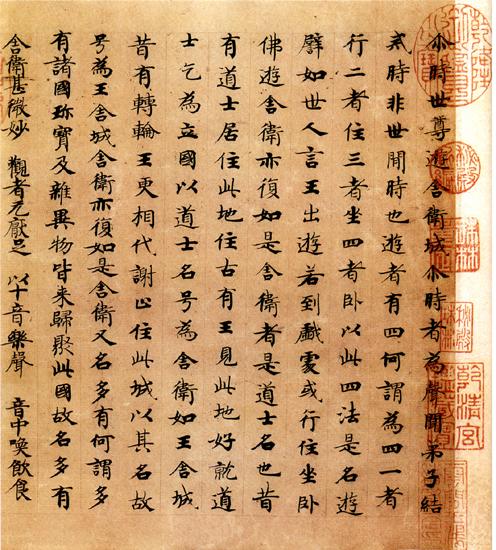 尒時世尊遊舍衛城尒時者為聲聞弟子結
貳時非世間時也遊者有四何謂為四一者
行二者住三者坐四者卧以此四法是名遊
譬如世人言王出遊若到戲處或行住坐卧
佛遊舍衛亦復如是舍衛者是道士名也昔
有道士居住此地住古有王見此地好就道
士乞為立國以道士名号為舍衛如王舍城
昔有轉輪王更相代謝止住此城以其名故
号為王舍城舍衛亦復如是舍衛又名多有何謂多
有諸國珎寶及雜異物皆来歸聚此國故名多有
舍衛甚微妙 觀者无厭足 以十音樂聲 音中喚飲食